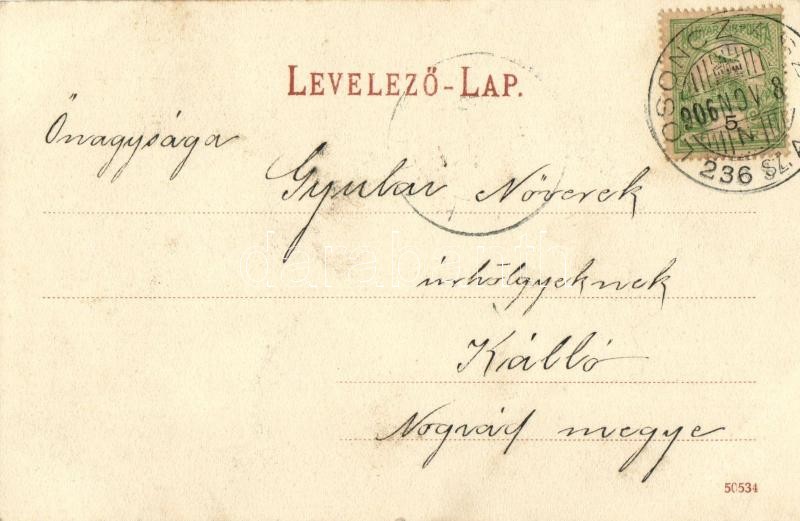 LEVELEZŐ-LAP.
MAGYAR KIR. POSTA
LOSONCZ
906 NOV 8
5
N
236 SZ. A
Önagysága
Gyulai Növerek
úrhölgyeknek
Kálló
Nográd megye
50534